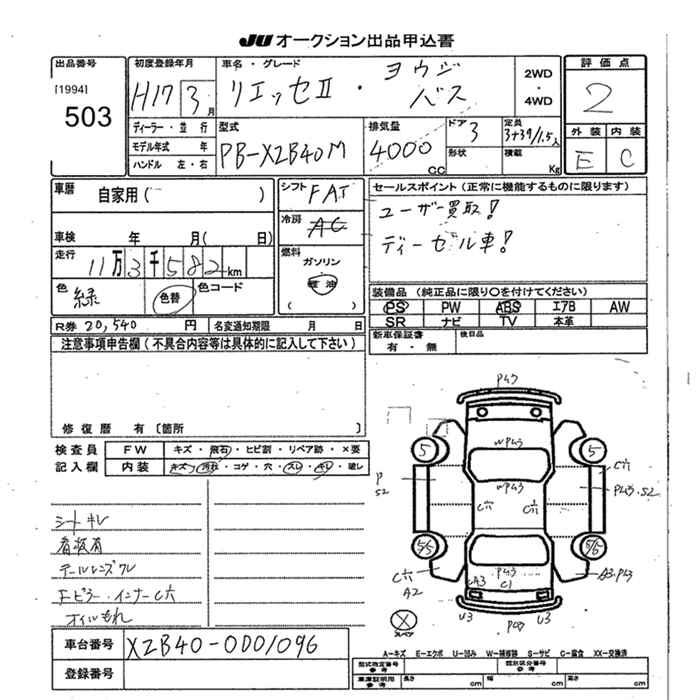 JU オークション出品申込書
出品番号
[1994]
503
初度登録年月
H17 3月
車名・グレード
リエッセⅡ・ヨウジバス
2WD
・
4WD
評価点
2
外装 内装
E C
ディーラー・並行
モデル年式 年
ハンドル 左・右
型式
PB-XZB40M
排気量
4000cc
ドア 3
形状
定員
3+39/1.5人
積載 Kg
車歴
自家用( )
車検 年 月( 日)
走行
11万3千582km
色
緑
色替
色コード
シフト FAT
冷房 AC
燃料
ガソリン
軽油
( )
セールスポイント(正常に機能するものに限ります)
ユーザー買取!
ディーゼル車!
装備品(純正品に限り〇を付けてください)
PS PW ABS エアB AW
SR ナビ TV 本革
R券 20,540円
名変通知期限 月 日
新車保証書
有・無
後日品
注意事項申告欄(不具合内容等は具体的に記入して下さい)
修復歴 有〔箇所 〕
検査員
記入欄
FW キズ・飛石・ヒビ割・リペア跡・×要
内装 キズ・汚れ・コゲ・穴・スレ・キレ・破レ
シートキレ
看板有
テールレンズワレ
Fピラー・インナーC穴
オイルもれ
P43
WP43
WP43
5
5
C穴
P
S2
P43・S2
C穴
C穴
5/5
5/6
C穴
A2
A3
P43
C1
A3・P43
U3
P43
U3
X
スペア
車台番号 XZB40-0001096
登録番号
A-キズ E-エクボ U-凹み W-補修跡 S-サビ C-腐食 XX-交換済
型式指定番号
参考
類別区分番号
参考
車庫証明用
参考
長さ cm
幅 cm
高さ cm